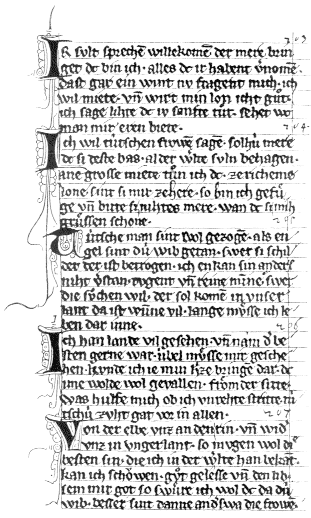 203
IR sult sprechē willekomē der mere brin
get dc bin ich · alles dc ir habent v̾nomē
dast gar ein wint nv fragent mich · ich
wil miete · vn̄ wirt min lon icht gůt ·
ich sage lihte dc iv sanfte tůt · sehet wc
man mir eren biete · 204
Ich wil tútschen frowē sagē · solhú mere
dc si deste bas · al der w̾lte suln behagen ·
ane grosse miete tůn ich dc · ze richeme
lone · sint si mir ze here · so bin ich gefů
ge vn̄ bitte si nihtes mere · wan dc si mih
grůssen schone · 205
Tútsche man sint wol gezogē · als en
gel sint dú wib getan · swer si schil
det der ist betrogen · ich enkan sin anders
niht v̾stan · tvgent vn̄ reine mīne · swer
die sůchen wil · der sol komē in vnser
lant da ist wūne vil · lange mv̊sse ich le
ben dar inne · 206
Ich han lande vil gesehen · vn̄ nam d̾ be
sten gerne war · úbel mv̊sse mir gesche
hen · kvnde ich ie min h̾ze bringē dar · dc
ime wolde wol gevallen · frömder sitte ·
was hulfe mich ob ich vnrehte stritte · tú
tschú zvht gat vor in allen · 207
Von der elbe vnz an den rin · vn̄ wid̾
vnz in vngerlant · so mvgen wol die
besten sin · die ich in der w̾lte han bekāt ·
kan ich schowen · gůt gelesse vn̄ den lib ·
sem mir got so swůre ich wol dc da dú
wib · besser sint danne and̾swa die frowē ·